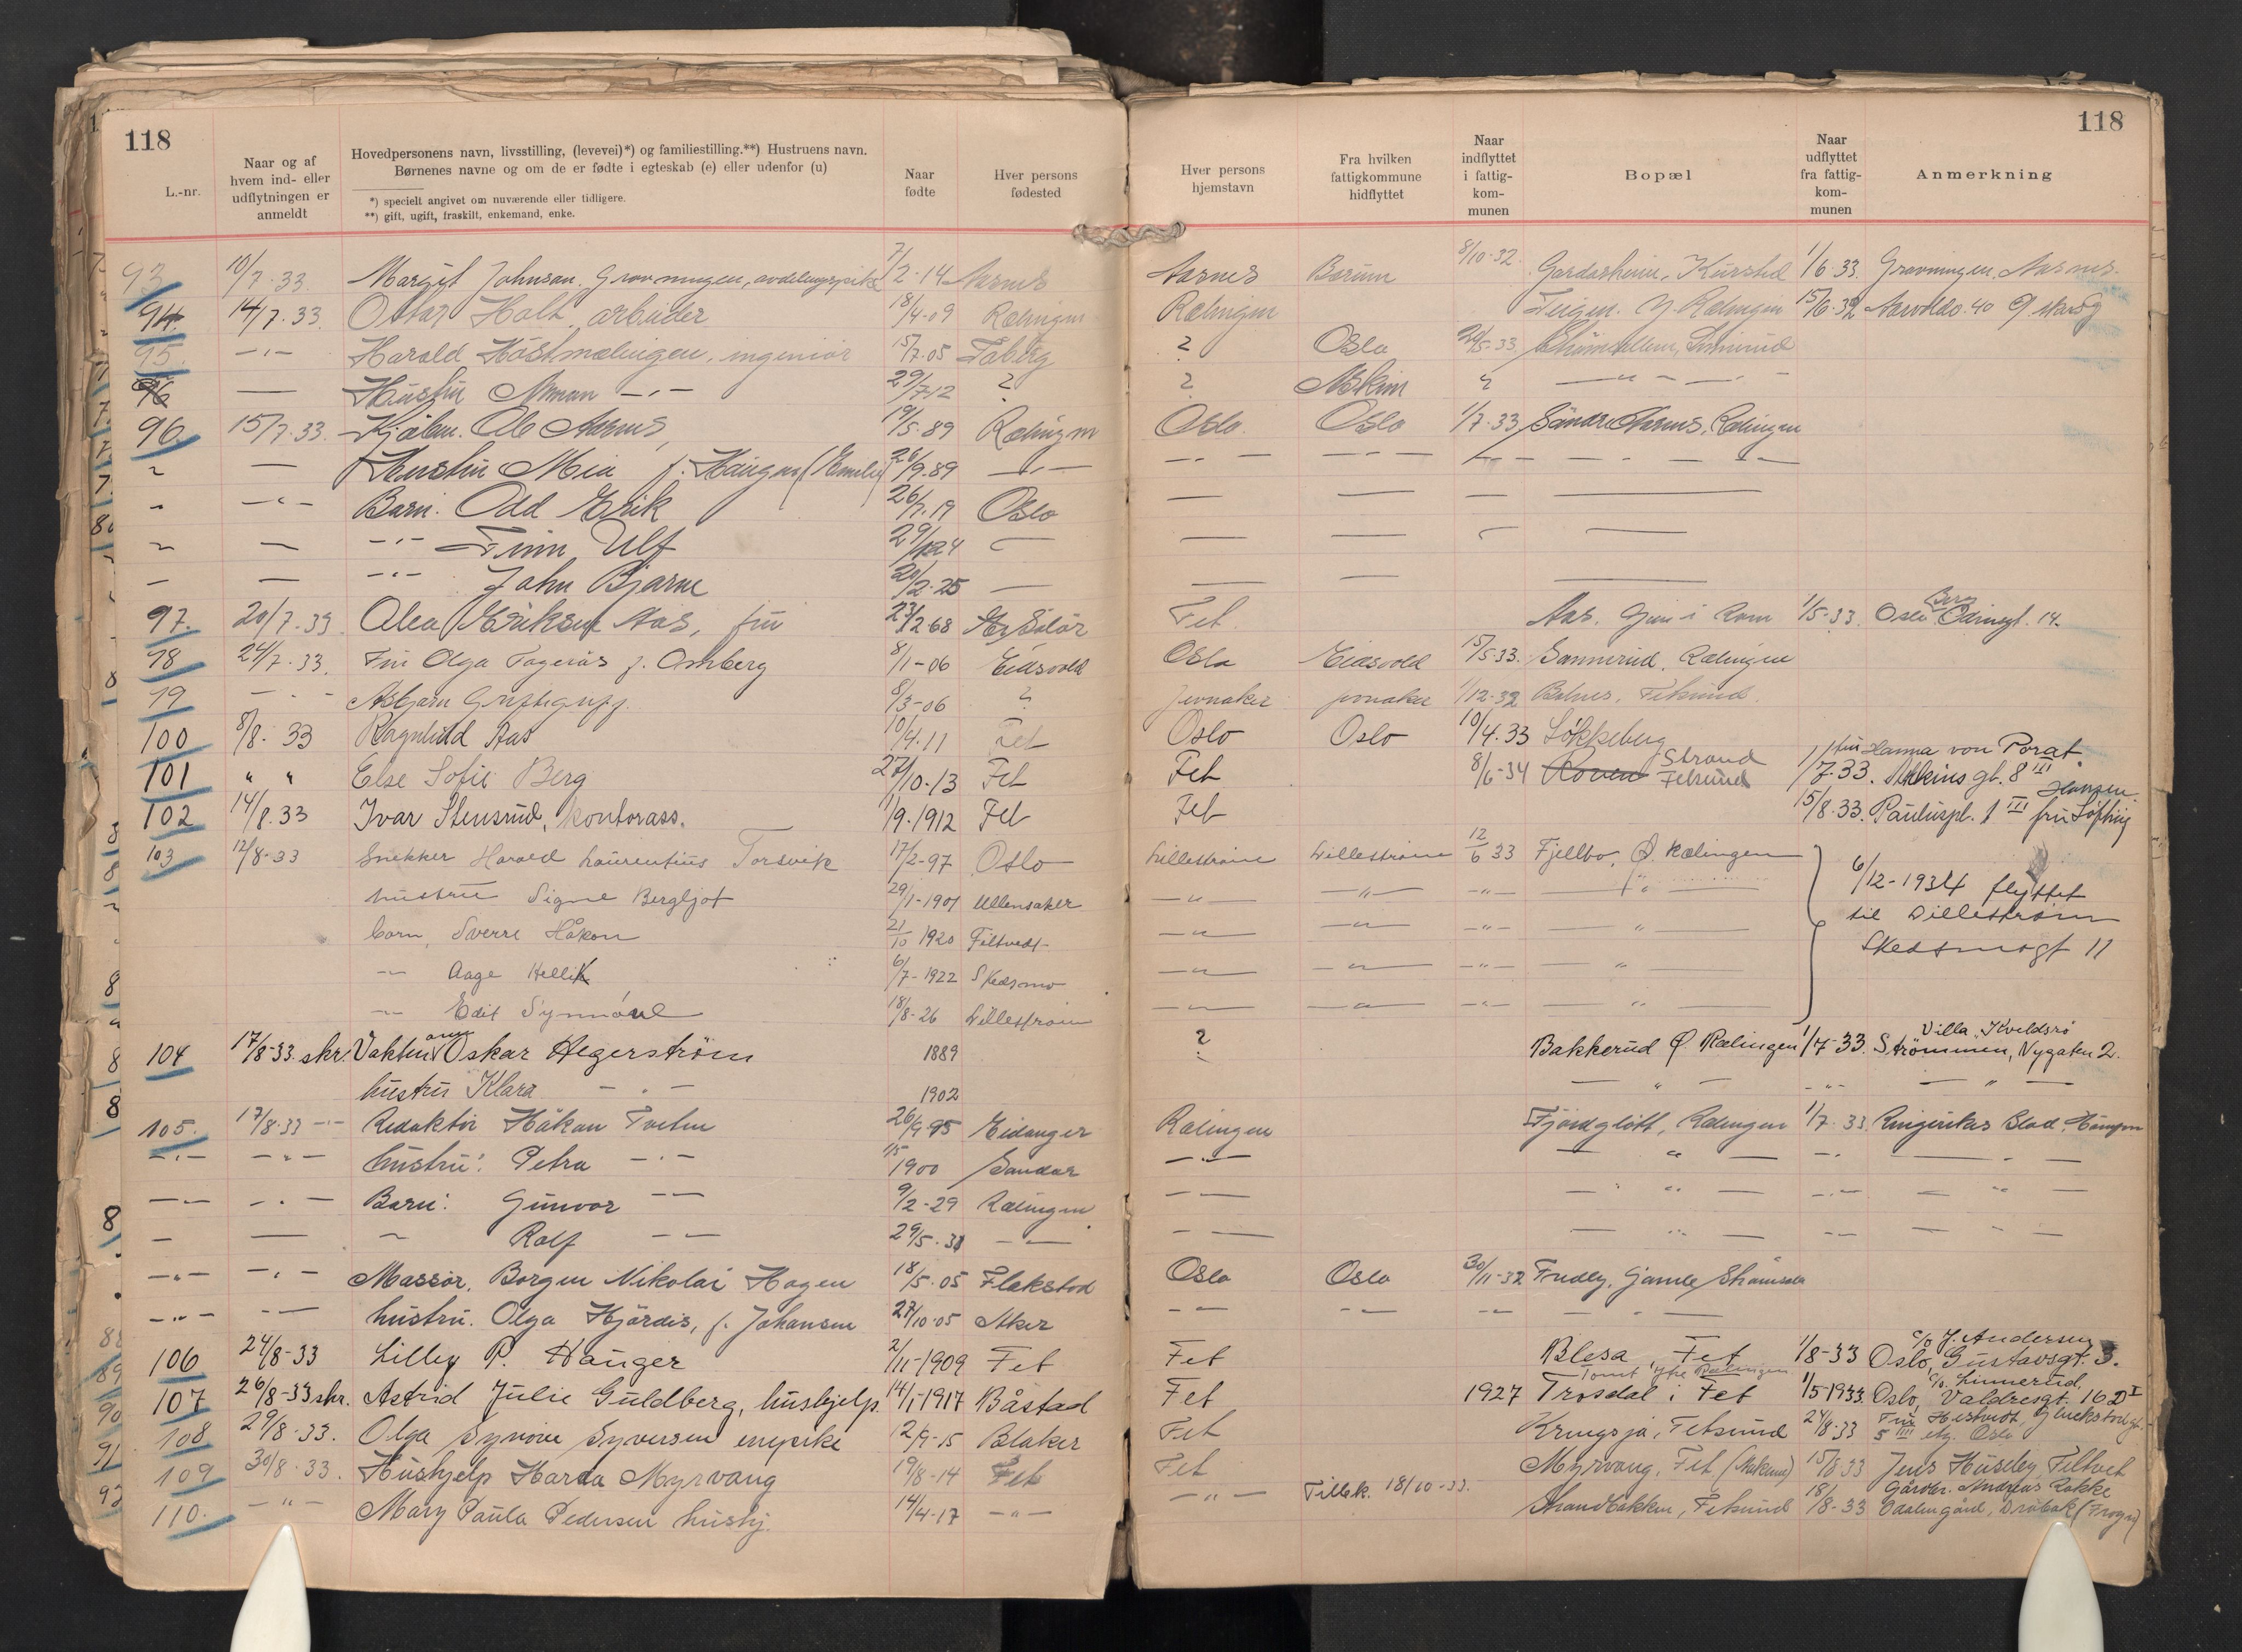 118
118
L.-nr.
Naar og af hvem ind- eller udflytningen er anmeldt
Hovedpersonens navn, livsstilling, (levevei)*) og familiestilling.**) Hustruens navn.
Børnenes navne og om de er fødte i egteskab (e) eller udenfor (u)
*) specielt angivet om nuværende eller tidligere.
**) gift, ugift, fraskilt, enkemand, enke.
Naar fødte
Hver persons fødested
Hver persons hjemstavn
Fra hvilken fattigkommune hidflyttet
Naar indflyttet i fattig-kom-munen
Bopæl
Naar udflyttet fra fattig-kom-munen
Anmerkning
93 10/7-33. Margit Johnsen. 7/2-14 Aarnes Aarnes Bærum 8/10-32. 1/6 33. Aarnes.
94. 14/7.33. Ottar Holt arbeider 18/4-09 Rælingen Rælingen Teigen. N. Rælingen 15/6.32
95. -"- Harald ingeniør 15/7.05 Faberg ? Oslo 5-33
96 — Hustru — " — 29/7 12 ? ? Askim
96. 15/7.33. Ole Aarnes 19/5-89 Rælingen Oslo. Oslo 1/7.33 Søndre Aarnes, Rælingen
" — Hustru Mia f. (Emilie) 26/9.89 — " —
" — " — Barn: Odd Erik 26/7.19 Oslo
" — — " — Finn Ulf
— — — " — John Bjarne 2-25 —
97. 20/7-33. Olea Eriksen Aas, fru 23/12 68 Fet. Aas, 1/5-33. Oslo Berg Odinsgt. 14.
98 24/7.33. Fru Olga f. Omberg 8/1-06 Eidsvold Oslo Eidsvold 15/5-33. Sannerud, Rælingen
99 — " — Asbjørn 8/3-06 ? Jevnaker Jevnaker 1/12-32 Fetsund.
100 8/8. 33 Ragnhild Aas 10/4.11 Fet Oslo Oslo 10/4.33 Løkkeberg
101 " " Else Sofie Berg 27/10-13 Fet Fet 8/6-34 Strand Fetsund 1/7.33. fru Hanna von Porat. gt. 8 III
102 14/8.33 Ivar Stensrud, kontorass. 1/9.1912 Fet Fet 15/8.33. Pauluspl. 1 III fru Hansen
103 12/8-33 Snekker Harald Laurentius Torsvik 17/2-97 Oslo Lillestrøm Lillestrøm 12/6 33 Fjellbo, Ø. Rælingen 6/12-1934 flyttet
til Lillestrøm
Skedsmogt 11
hustru Signe Bergljot 29/1-1901 Ullensaker — " — — " — — " — — " —
barn, Sverre Håkon 21/10 1920 Filtvedt — " — — " — — " — — " —
— " — Aage Hellik 6/7-1922 Skedsmo — " — — " — — " — — " —
— " — Edit Synnøve 18/8-26 Lillestrøm — " — — " — — " — — " —
104 17/8-33. skr. Vaktmann Oskar Hegerstrøm 1889 ? Bakkerud Ø. Rælingen 1/7-33. Villa Kveldsro Strømmen, Nygaten 2.
hustru Klara — " — 1902 — " — — " — — " —
105. 17/8.33 — " — Redaktør Håkon Tveten 26/9.95 Eidanger Rælingen Fjordgløtt, Rælingen 1/7.33. Ringerikes Blad,
— " — — " — hustru: Petra — " — 1/5 1900 Sandar — " —
— " — — " — Barn: Gunvor — " — 9/2-29 Rælingen — " —
— — " Rolf — " — 29/5.31 — " —
— " — — " — Massør, Borgen Nikolai Hagen 18/5.05 Flakstad Oslo Oslo 30/11-32
— " — — " — hustru. Olga Hjørdis, f. Johansen 27/10.05 Aker — " — — " — — " —
106 24/8-33 Lilly P. Hauger 2/11-1909 Fet Fet Blesa, Fet 1/8-33 c/o J. Andersen Oslo, Gustavsgt. 3.
107 26/8-33 skr. Astrid Julie Guldberg, hushjelp. 14/1-1917 Båstad Fet 1927 Trosdal i Fet 1/5 1933. c/o Linnerud. Oslo, Valdresgt. 16 D I
108 29/8.33. Olga Synøve Syversen enepike 12/9-15 Blaker Fet Kringsjå, Fetsund 24/8-33 Fru 5 III etg. Oslo
109 30/8.33. Hushjelp Harda Myrvang 19/8-14 Fet Fet Myrvang, Fet 15/8 33 Jens Huseby, Filtvet
110. — " — Mary Paula Pedersen hushj. 14/4-17 — " — — " — Tilbk. 18/10-33. Strandbakken, Fetsund 18/8-33 Gårdbr. Andreas Rakke Drøbak (Frogn)